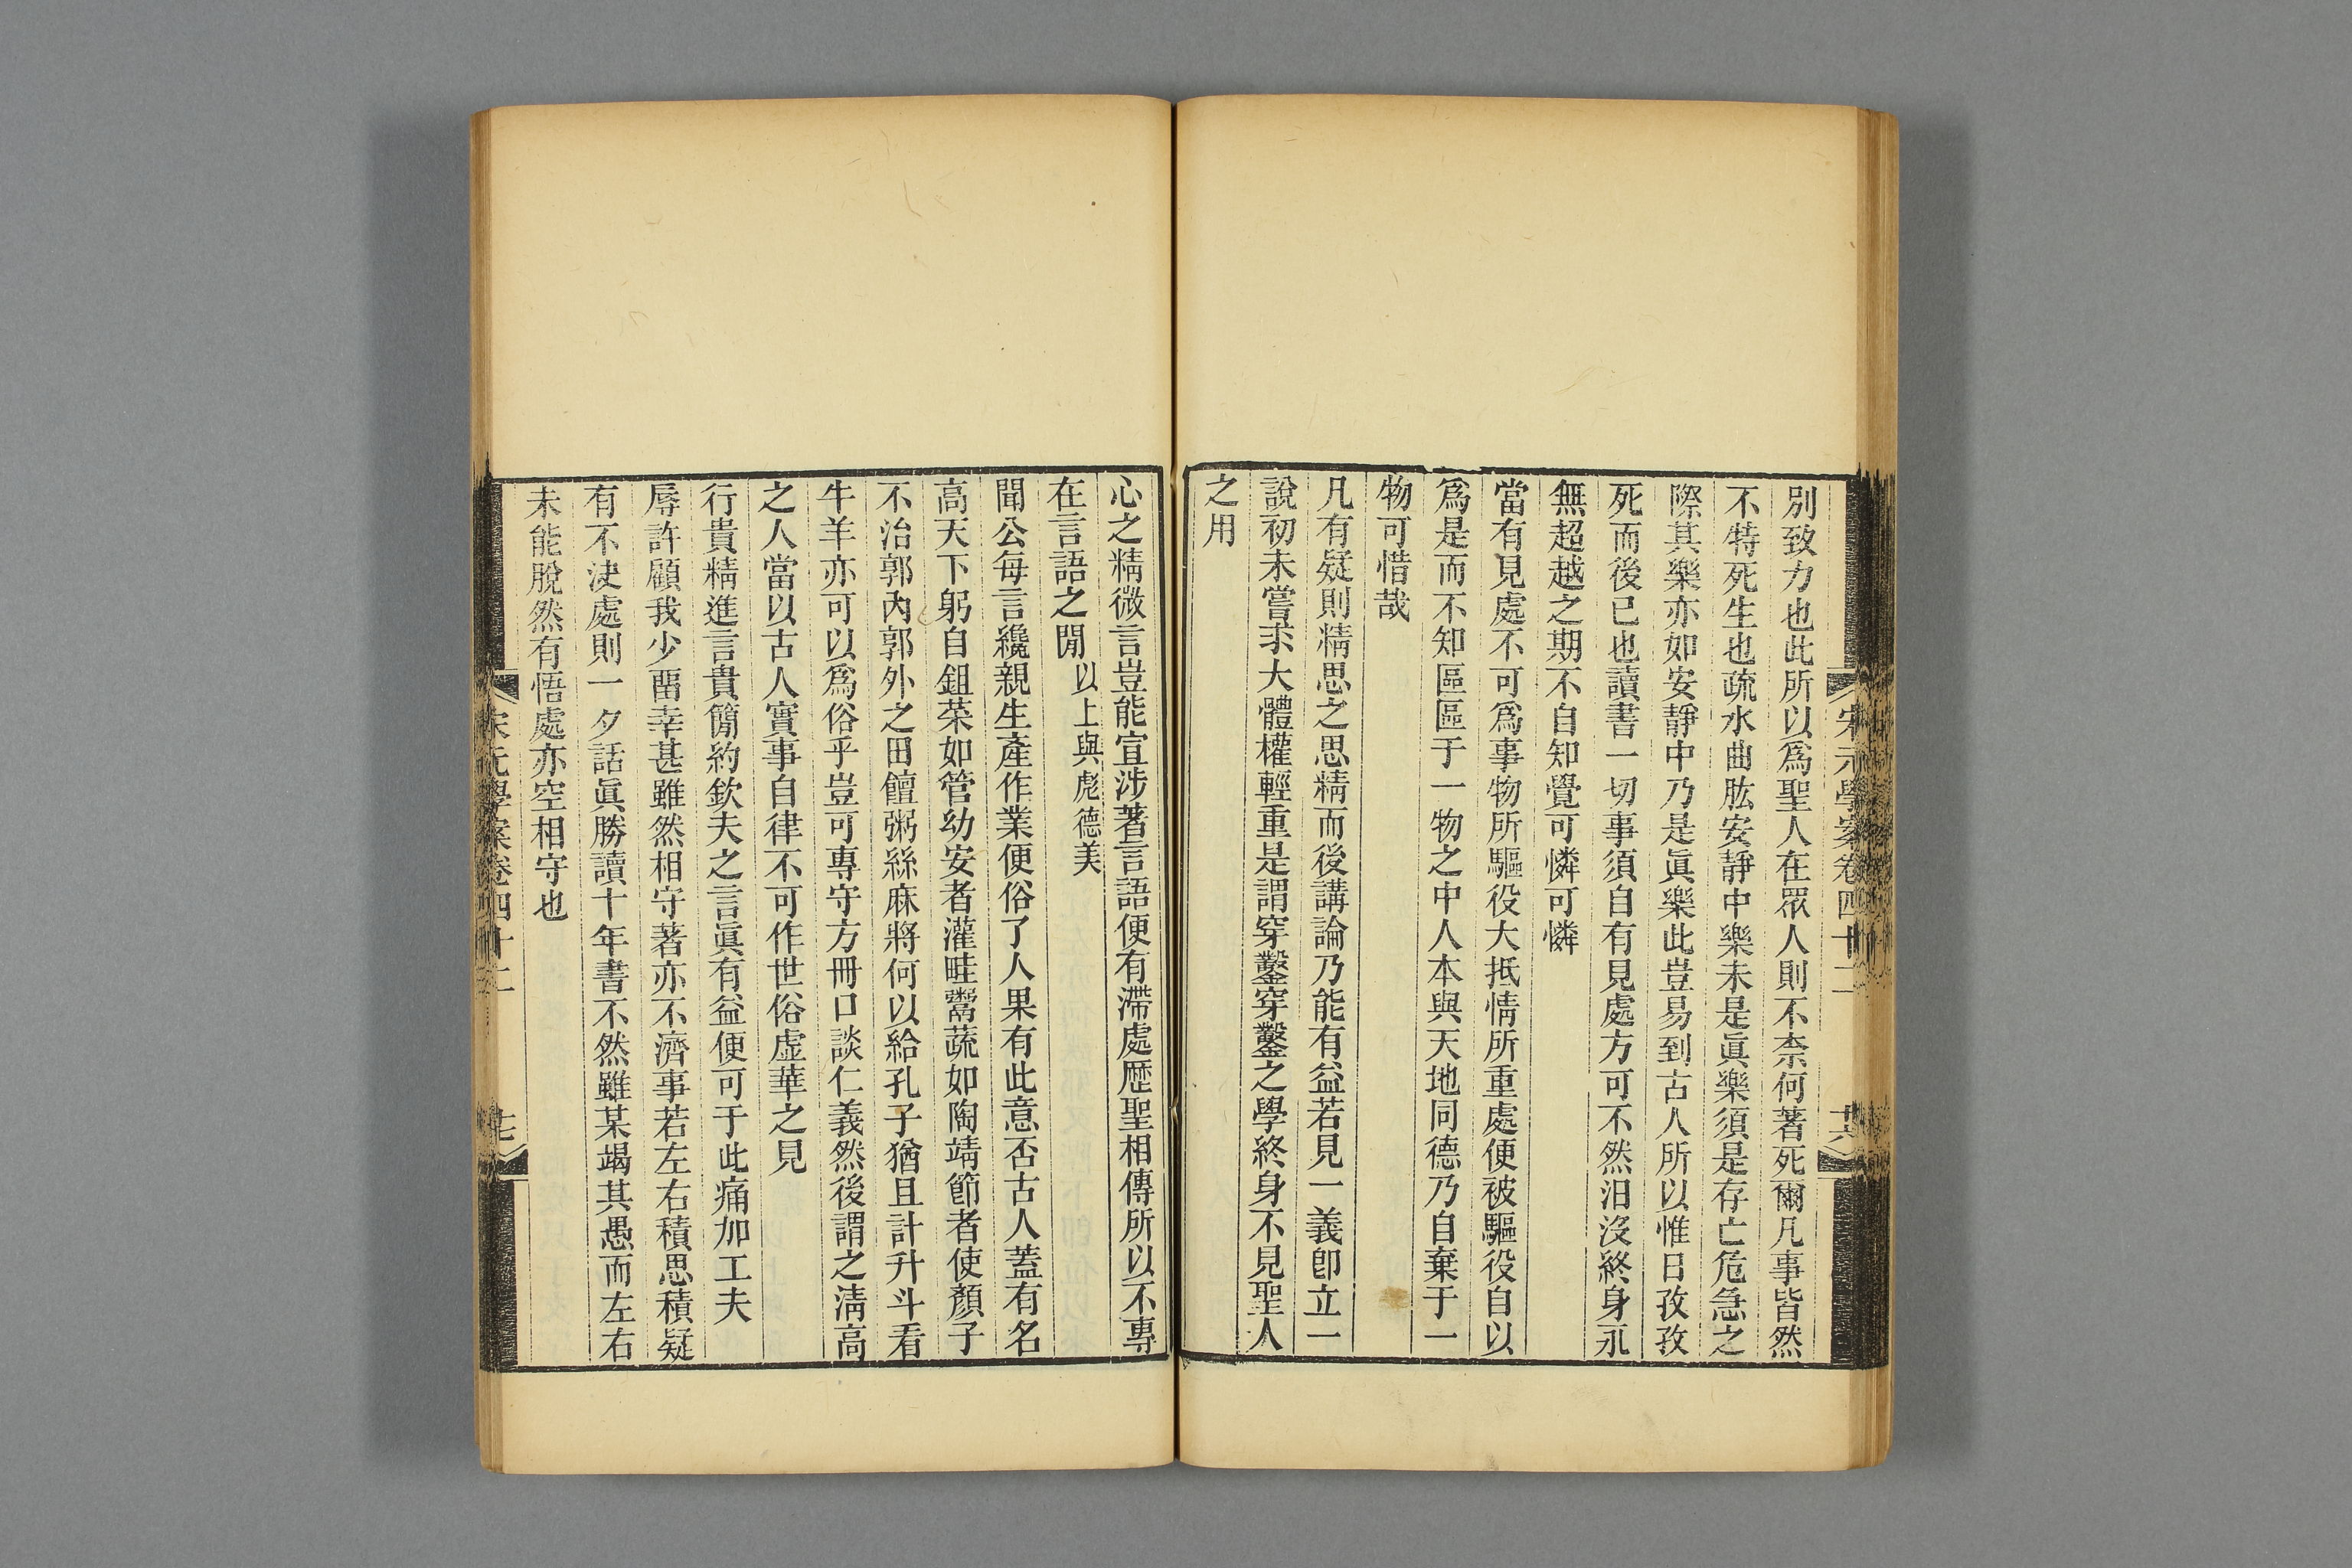 宋元學案卷四十二
共
別致力也此所以爲聖人在眾人則不柰何著死爾凡事皆然
不特死生也疏水曲肱安靜中樂未是眞樂須是存亡危急之
際其樂亦如安靜中乃是眞樂此豈易到古人所以惟日孜孜
死而後已也讀書一切事須自有見處方可不然汨沒終身永
無超越之期不自知覺可憐可憐
當有見處不可爲事物所驅役大抵情所重處便被驅役自以
爲是而不知區區于一物之中人本與天地同德乃自棄于一
物可惜哉
凡有疑則精思之思精而後講論乃能有益若見一義卽立一
說初未嘗求大體權輕重是謂穿鑿穿鑿之學終身不見聖人
之用
心之精微言豈能宣涉著言語便有滯處歷聖相傳所以不專
在言語之閒以上與彪德美
聞公每言纔親生產作業便俗了人果有此意否古人蓋有名
高天下躬自鉏菜如管幼安者灌畦鬻蔬如陶靖節者使顏子
不治郭內郭外之田饘粥絲麻將何以給孔子猶且計升斗看
牛羊亦可以爲俗乎豈可專守方冊口談仁義然後謂之淸高
之人當以古人實事自律不可作世俗虛華之見
行貴精進言貴簡約欽夫之言眞有益便可于此痛加工夫
辱許顧我少畱幸甚雖然相守著亦不濟事若左右積思積疑
有不決處則一夕話眞勝讀十年書不然雖某竭其愚而左右
未能脫然有悟處亦空相守也
宋元學案卷四十二